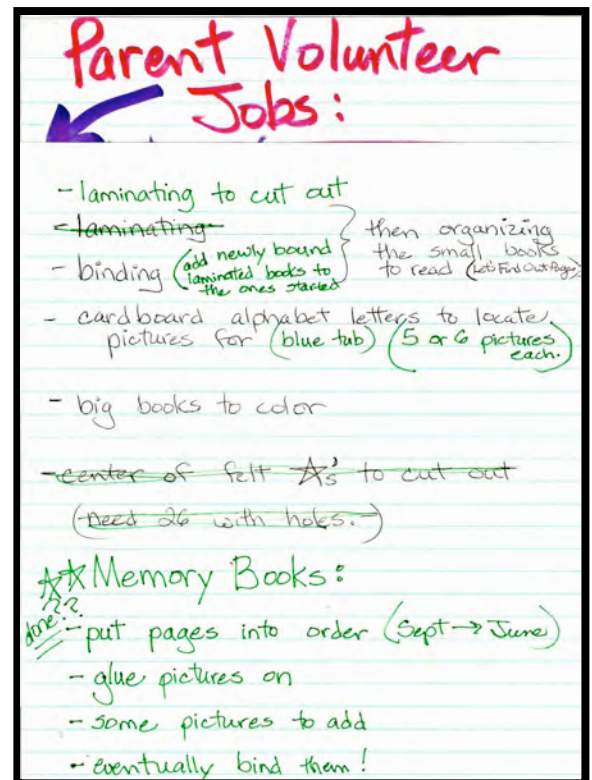 Parent Volunteer
Jobs:
- laminating to cut out
- laminating
- binding (add newly bound laminated books to the ones started
} then organizing the small books to read (Let's Find Out Pages)
- cardboard alphabet letters to locate
pictures for (blue tub) (5 or 6 pictures each.)
- big books to color
- center of felt ☆'s to cut out
(need 26 with holes.)
☆☆ Memory Books:
done??
- put pages into order (Sept → June)
- glue pictures on
- some pictures to add
- eventually bind them!